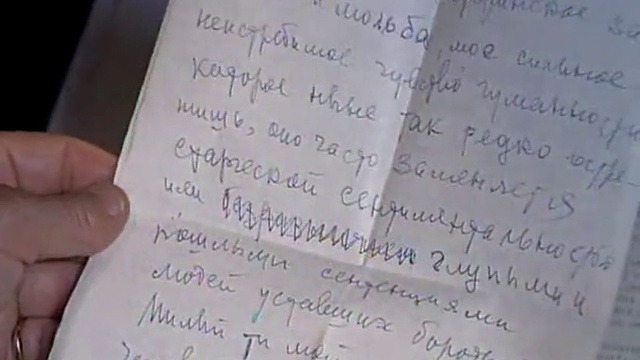 мольба, мое сильное
неистребимое чувство гуманности
которое ныне так редко встре-
тишь, оно часто заменяется
старческой сентиментальностью
или глупыми и
пошлыми сентенциями
людей уставших
Милый ты мой